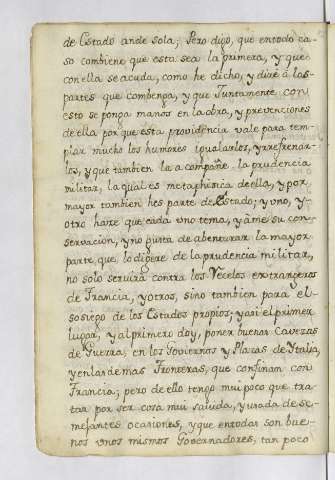 de Estado ande sola; Pero digo, que entodo ca-
so combiene que esta sea la primera, y que
con ella se acuda, como he dicho, y diré á las
partes que combenga, y que Juntamente con
esto se ponga manos en la obra, y prevenciones
de ella por que esta providencia vale para tem-
plar mucho los humores igualarlos, y refrenár-
los, y que tambien la acompañe la prudencia
militar, la qual es metaphisica de ella, y por
mayor tambien hes parte de Estado; y uno, y
otro haze que cada uno tema, y áme su con-
servación, y no gusta de abenturar la mayor
parte, que lo digere de la prudencia militar,
no solo servirá contra los Recelos extrangeros
de Francia, y otros, sino tambien para el
sosiego de los Estados propios; y asi el primer
lugar, y al primero doy, poner buenas Cavezas
de Guerra, en los Goviernos y Plazas de Italia,
y en las demas Fronteras, que confinan con
Francia; pero de ello tengo mui poco que tra-
tar por ser cosa mui savida, y usada de se-
mejantes ocasiones, y que entodas son bue-
nos unos mismos Governadores, tan poco